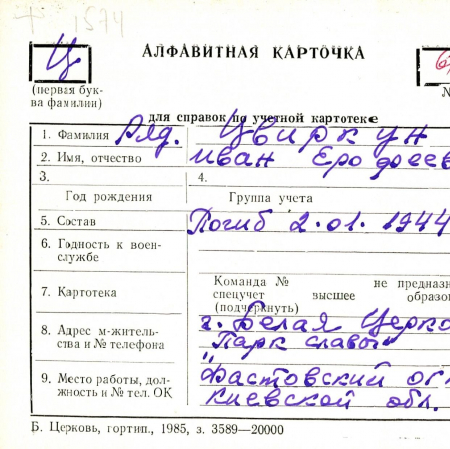 1574
Ц
АЛФАВИТНАЯ КАРТОЧКА
(первая бук-
ва фамилии)
№
для справок по учетной картотеке
1. Фамилия Ряд. Цвиркун
2. Имя, отчество Иван Ерофеев
3. 4.
Год рождения Группа учета
5. Состав Погиб 2.01.1944
6. Годность к воен-
службе
7. Картотека Команда № не предназн
спецучет высшее образо
(подчеркнуть)
8. Адрес м-житель-
ства и № телефона
г. Белая Церко
"Парк славы"
9. Место работы, дол-
жность и № тел. ОК
Фастовский
Киевской обл.
Б. Церковь, гортип., 1985, з. 3589—20000